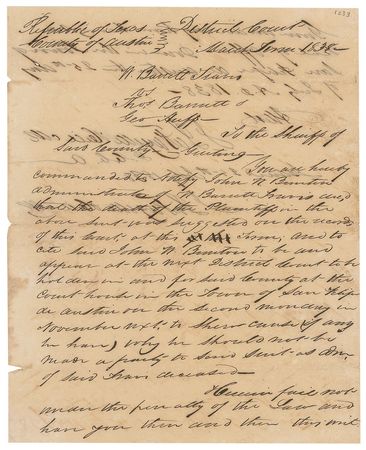 1233
Republic of Texas District Court
County of Austin March Term 1838—
W Barrett Travis
vs
Thos Barnett &
Geo Huff—
To the Sheriff of
Said County Greeting
You are hereby
commanded to notify John N Bunton
administrator W Barrett Travis and
the death of the Plaintiff in the
above suit was suggested on the records
of this Court, at the Term, and to
cite said John N Bunton to be and
appear at the next District Court to be
holden in and for said County at the
Court house in the Town of San Felipe
de Austin on the second monday in
November next, to shew cause (if any
he have) why he should not be
made a party to said suit as Adm.
of said Travis deceased—
Herein fail not
under the penalty of the Law and
have you then and there this writ